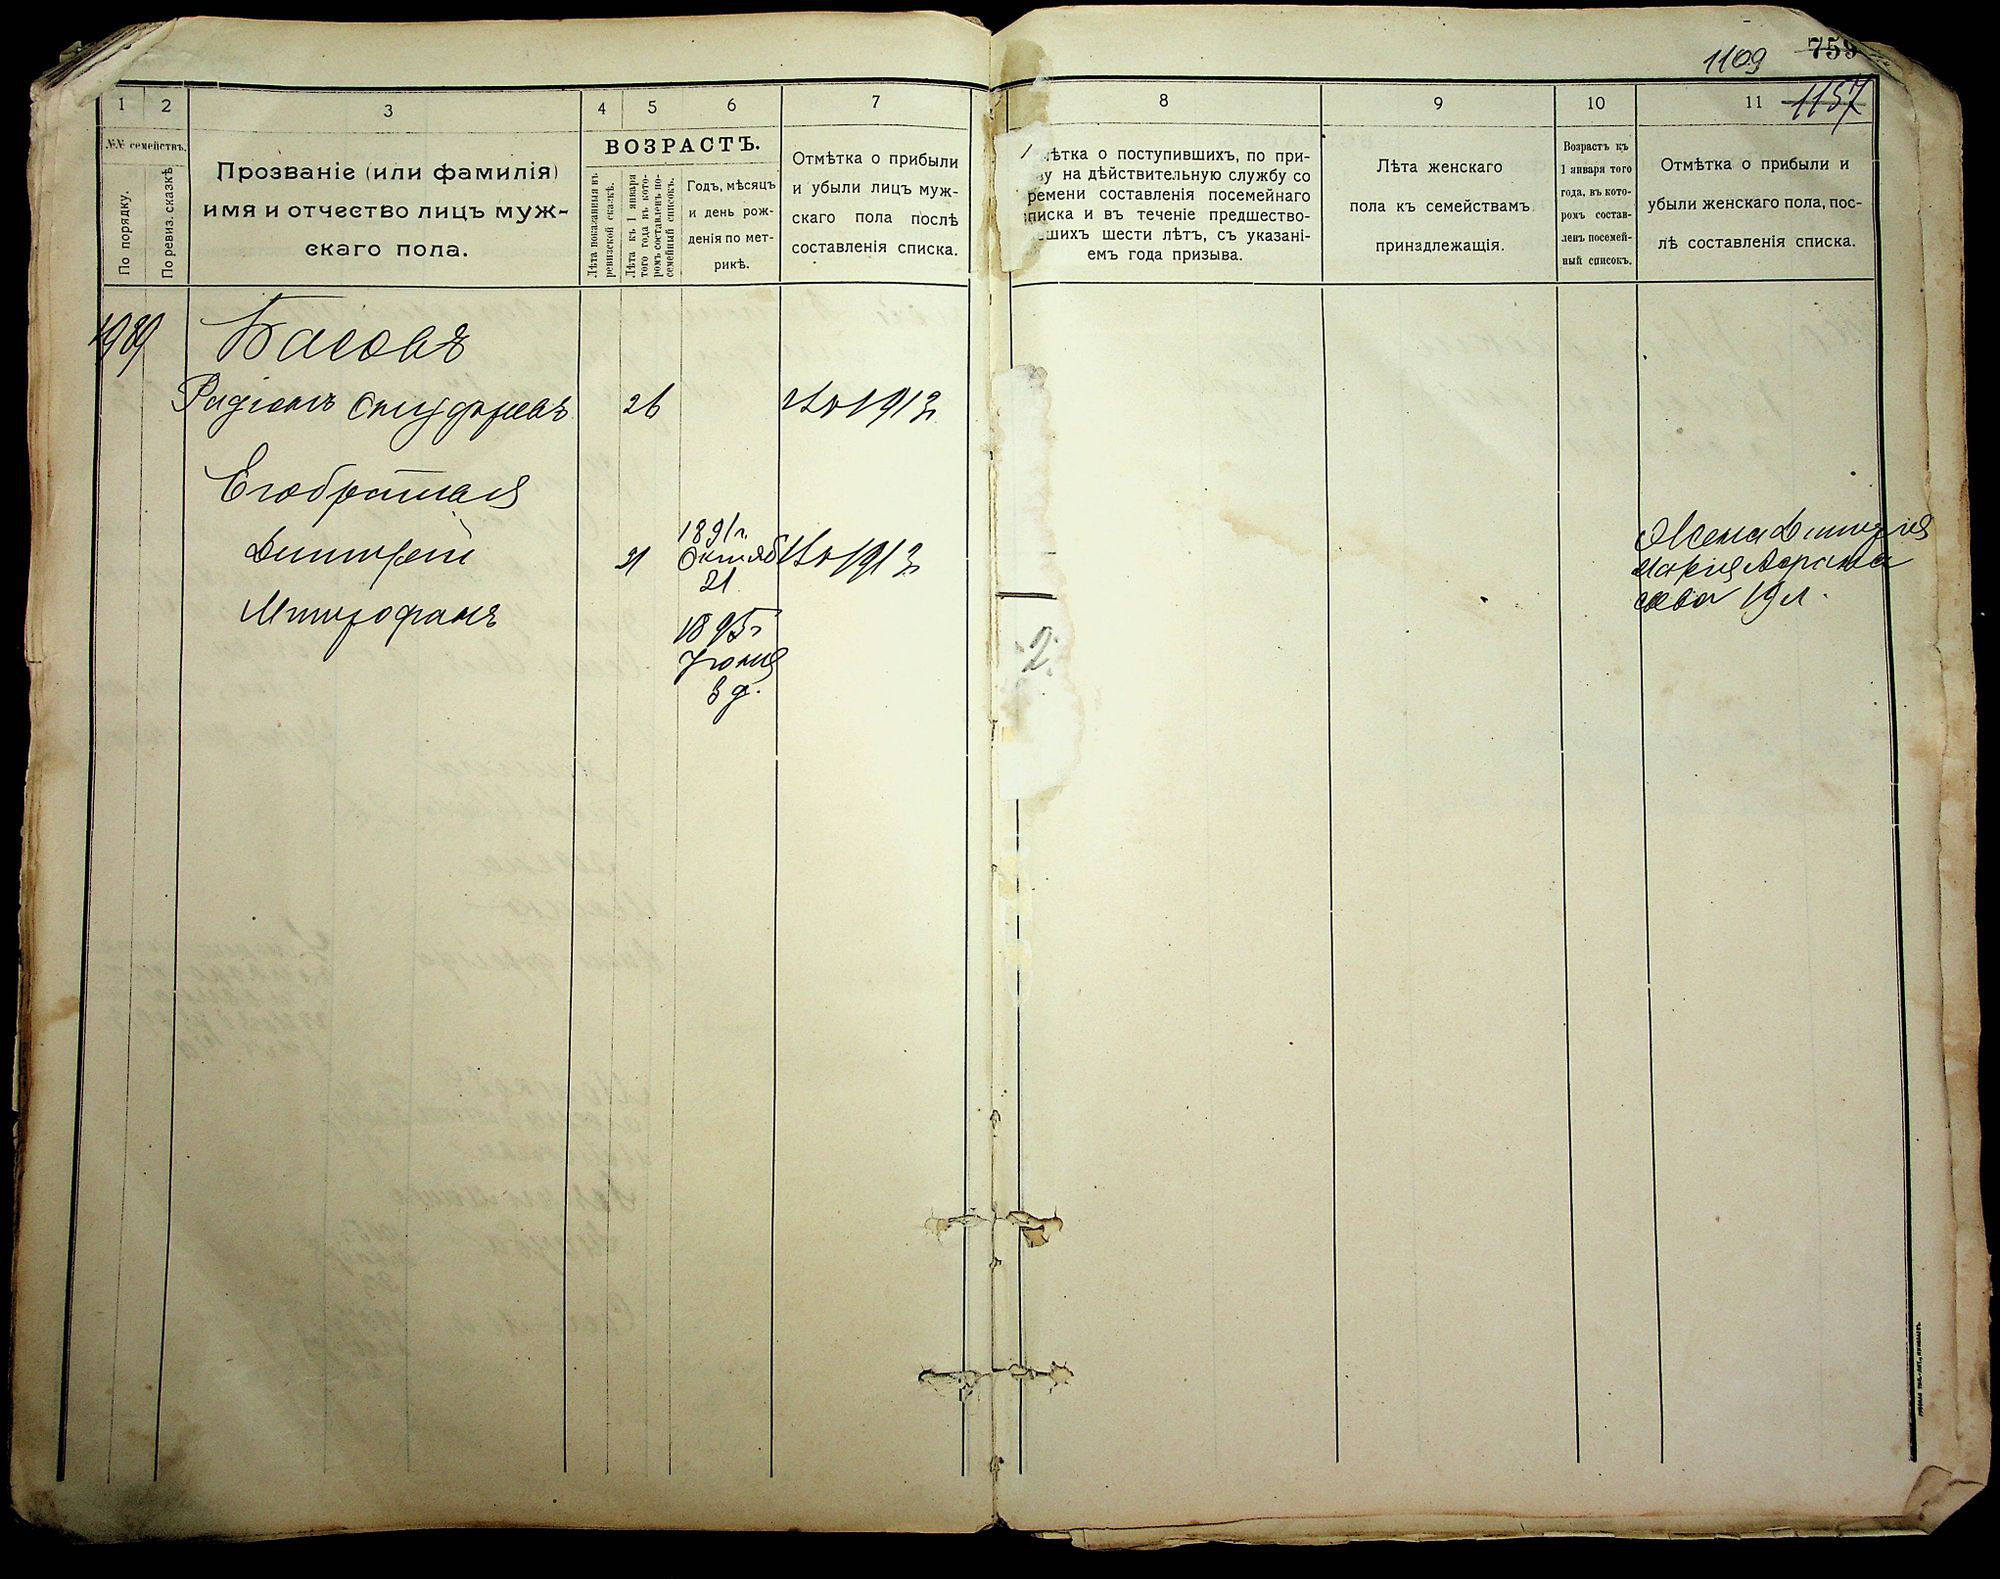 1109 759
1137
1
2
3
4
5
6
7
8
9
10
11
№№ семействъ.
По порядку.
По ревиз. сказкѣ
Прозваніе (или фамилія)
имя и отчество лицъ муж-
скаго пола.
ВОЗРАСТЪ.
Лѣта показанныя въ
ревизской сказкѣ.
Лѣта къ 1 января
того года въ кото-
ромъ составленъ по-
семейный списокъ.
Годъ, мѣсяцъ
и день рож-
денія по мет-
рикѣ.
Отмѣтка о прибыли
и убыли лицъ муж-
скаго пола послѣ
составленія списка.
ѣтка о поступившихъ, по при-
ву на дѣйствительную службу со
ремени составленія посемейнаго
писка и въ теченіе предшество-
шихъ шести лѣтъ, съ указані-
емъ года призыва.
Лѣта женскаго
пола къ семействамъ
принадлежащія.
Возрастъ къ
1 января того
года, въ кото-
ромъ состав-
ленъ посемей-
ный списокъ.
Отмѣтка о прибыли и
убыли женскаго пола, пос-
лѣ составленія списка.
1989 Басовъ
Радіонъ 26 1913
Его братья
Дмитрій 21 1891 г. Октяб 21 1913
Митрофанъ 1895 г Іюня 3 д.
Жена Дмитрія
Марія
19 л.
2